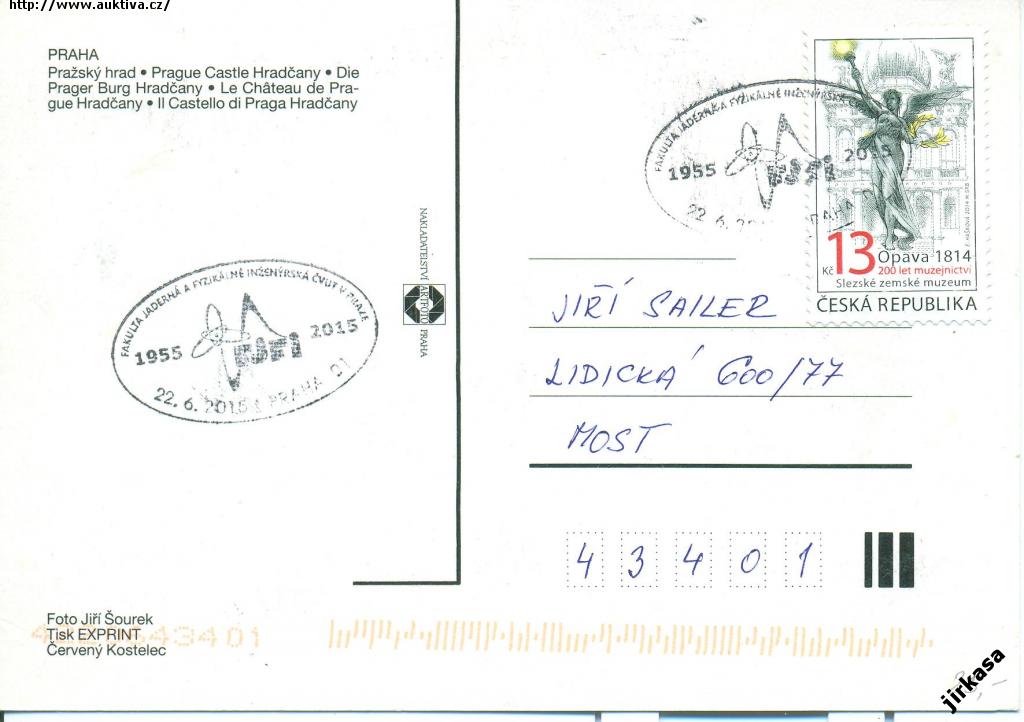 http://www.auktiva.cz/
PRAHA
Pražský hrad • Prague Castle Hradčany • Die
Prager Burg Hradčany • Le Château de Pra-
gue Hradčany • Il Castello di Praga Hradčany
FAKULTA JADERNÁ A FYZIKÁLNĚ INŽENÝRSKÁ ČVUT V PRAZE
1955 FJFI 2015
22. 6. 2015 PRAHA 01
NAKLADATELSTVÍ ARTFOTO PRAHA
FAKULTA JADERNÁ A FYZIKÁLNĚ INŽENÝRSKÁ
1955 FJFI 2015
22. 6. PRAHA
Kč 13 Opava 1814
200 let muzejnictví
Slezské zemské muzeum
ČESKÁ REPUBLIKA
JIŘÍ SAILER
LIDICKÁ 600/77
MOST
43401
Foto Jiří Šourek
Tisk EXPRINT
Červený Kostelec
43401
jirkasa